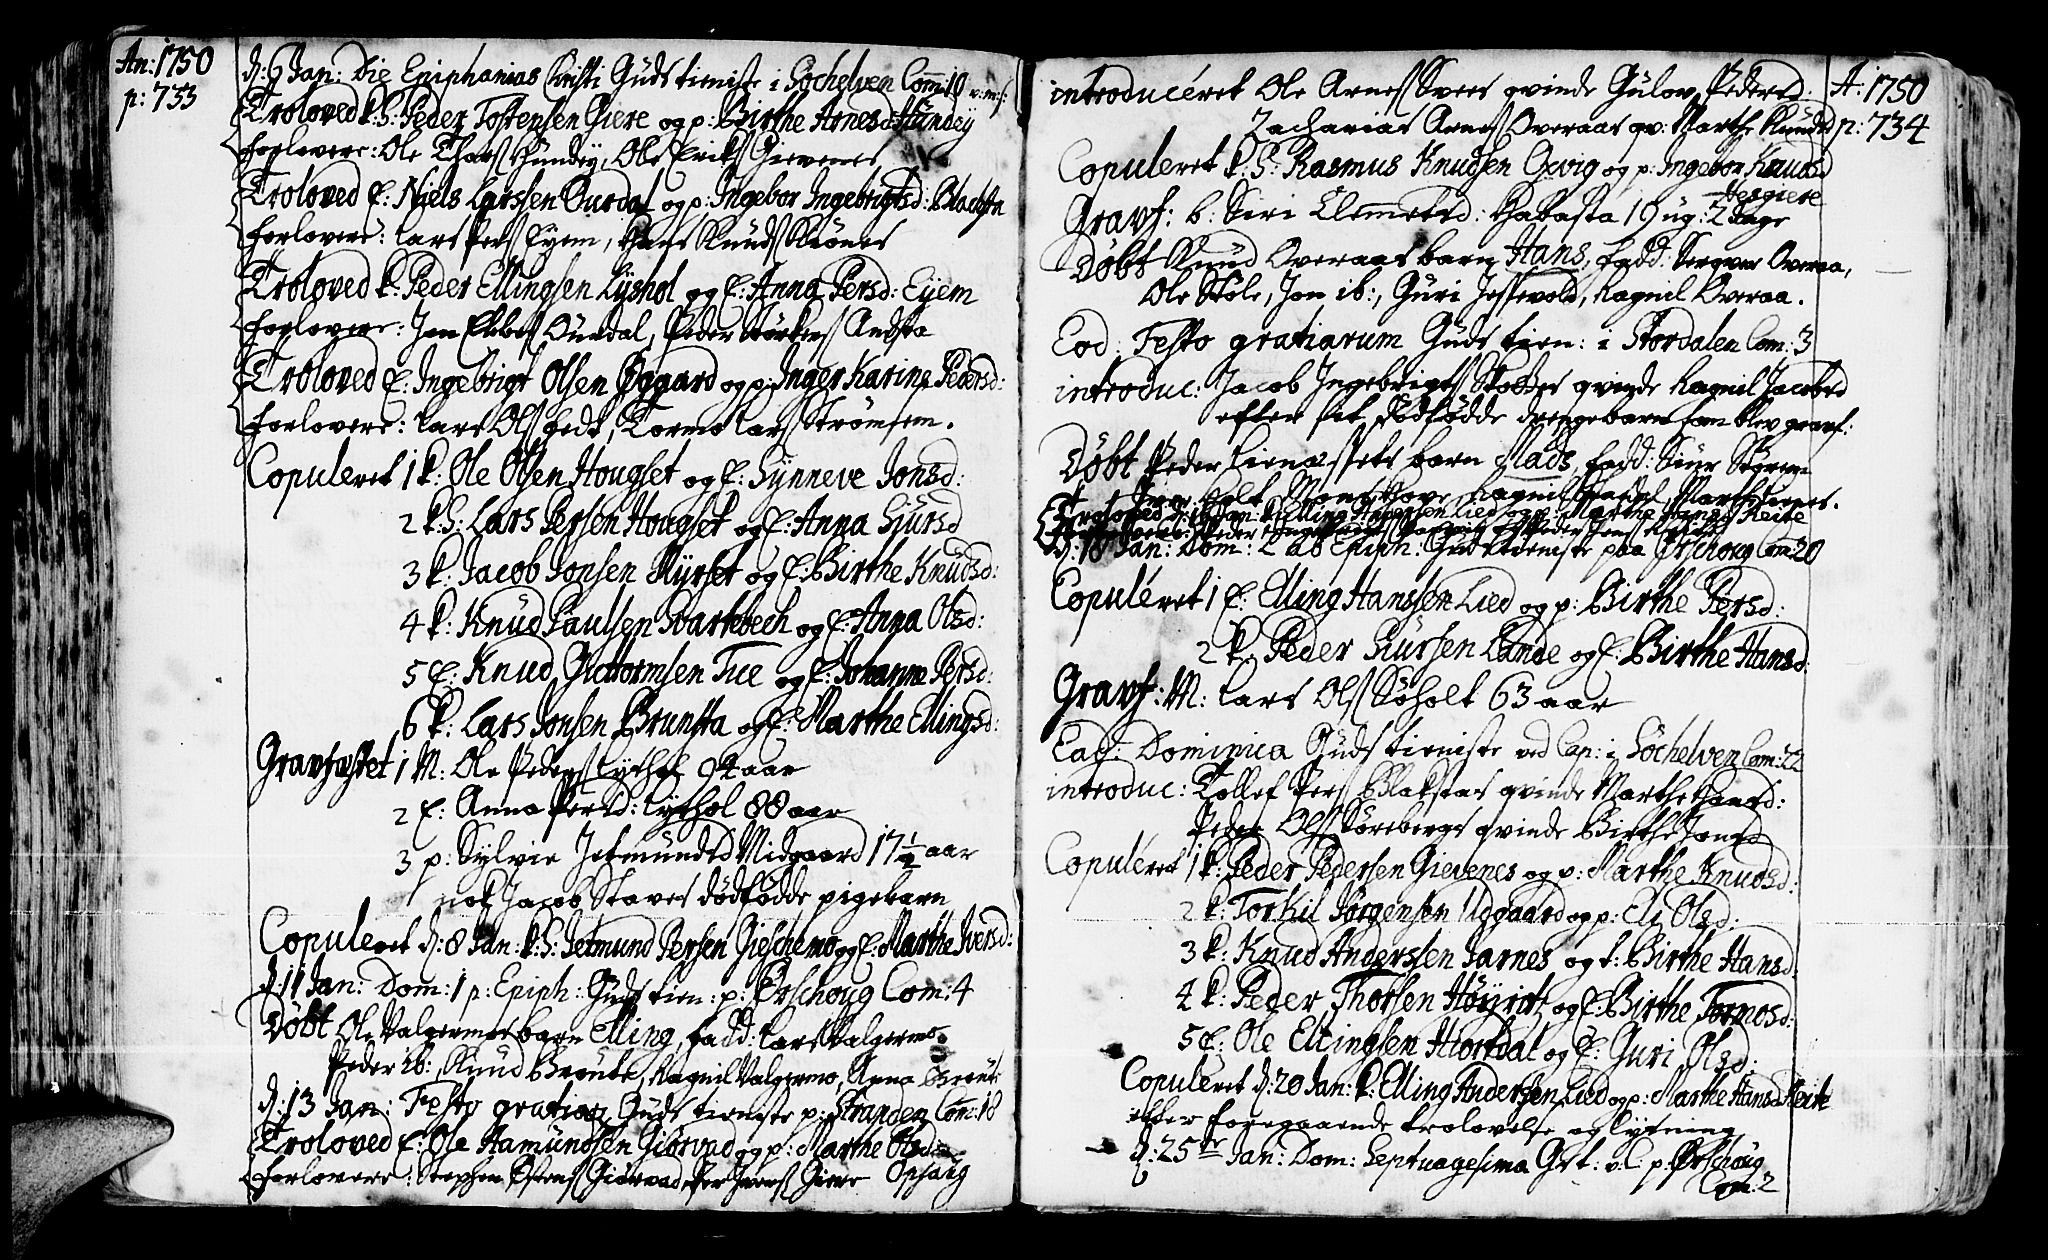 An: 1750
p: 733
d: 6 Jan: Die Epiphanias Christi Guds tieniste i Søchelven Com: 10
Troloved k: S: Peder Tostensen Giere og p: Birthe Arnesd: Hundey
forlovere: Ole Thors Hundey, Ole Eriks Gievenes
Troloved E: Niels Larssen Ourdal og p: Ingebor Ingebrigtsd: Blachsta
forlovere: Lars Pers Eyem, Hans Knuds
Troloved k: Peder Ellingsen Lyshol og E: Anna Persd: Eyem
forlovere: Jon Ebbes Ourdal, Peder Andsta
Troloved E: Ingebrigt Olsen Øggard og p: Inger Karina Pedersd:
forlovere: Lars Ols Fedt, Tormo Lars Strømsem.
Copuleret 1 k: Ole Olsen Hougset og E: Synneve Jonsd:
2 k: S: Lars Persen Hougset og E: Anna Sjursd
3 k: Jacob Jonsen Myrset og E: Birthe Knudsd:
4 k: Knud Paulsen Svartebech og E: Anna Olsd:
5 E: Knud Guttormsen Tue og E: Johanne Persd:
6 k: Lars Jonsen Brunsta og E: Marthe Ellingsd:
Gravfæstet 1 M: Ole Peders Lyshol 94 aar
2 E: Anna Persd: Lyshol 88 aar
3 p: Sylvie Jetmundsd Midgaard 17 1/2 aar
nok Jacob Staves dødfødde pigebarn
Copuleret d: 8 Jan: k: S: Jetmund Persen Gieschemo og E: Marthe Iversd:
d: 11 Jan: Dom: 1 p: Epiph: Guds tien: p: Ørschoug Com: 4
Døbt Ole Valgermos barn Elling, fadd: Lars Valgermo,
Peder ib:, Knud Brøute, Ragnil Valgermo, Anna Brøute
d: 13 Jan: Festo gratiar Guds tieniste p: Stranden Com: 18
Troloved E: Ole Hamundsen Giørvad og p: Marthe Olsd:
forlovere: Stephen Østens Giørvad, Per Ivers Giere Opsaig
A: 1750
p: 734
introduceret Ole Arnes Sves qvinde Gulov Pedersd:
Zacharias Arnes Overaas qv: Marthe Knudsd
Copuleret k: S: Rasmus Knudsen Qvvig og p: Ingebor Knudsd
Gravf: b: Siri Clemetsd: Habosta 19 ug: 2 dage
Døbt Knud Overaas barn Hans, fadd: Overaa,
Ole Stole, Jon ib:, Guri Jessevold, Ragnil Overaa.
Eod: Festo gratiarum Guds tien: i Stordalen Com: 3
introduc: Jacob Ingebrigts qvinde Ragnil Jacobsd
efter sit dødfødde drengebarn som blev gravf:
Døbt Peder barn Mads, fadd: Siur
Troloved d: 18 Jan: k: Elling Andersen Lied og p: Marthe Hansd Reite
d: 18 Jan: Dom: 2 ab Epiph: Guds tieniste paa Ørschoug Com: 20
Copuleret 1 E: Elling Hanssen Lied og p: Birthe Persd:
2 k: Peder Siursen Lande og E: Birthe Hansd:
Gravf: M: Lars Ols Søholt 63 aar
Ead: Dominica Guds tieniste ved Cap: i Søchelven Com: 22
introduc: Tollef Pers Blakstad qvinde Marthe Hansd:
Peder Ols Sørebergs qvinde Birthe Jonsd
Copuleret 1 k: Peder Pedersen Gievenes og p: Marthe Knudsd:
2 k: Torkil Jørgensen Udgaard og p: Eli Olsd:
3 k: Knud Anderssen Jarnes og E: Birthe Hansd:
4 k: Peder Thorsen og E: Birthe Tormosd:
5 E: Ole Ellingsen Hiortdal og E: Guri Olsd:
Copuleret d: 20 Jan: k: Elling Andersen Lied og p: Marthe Hansd Reite
efter foregaaende trolovelse og lysning
d: 25de Jan: Dom: Septuagesima Gst: v: C: p: Ørschoug
Com: 2